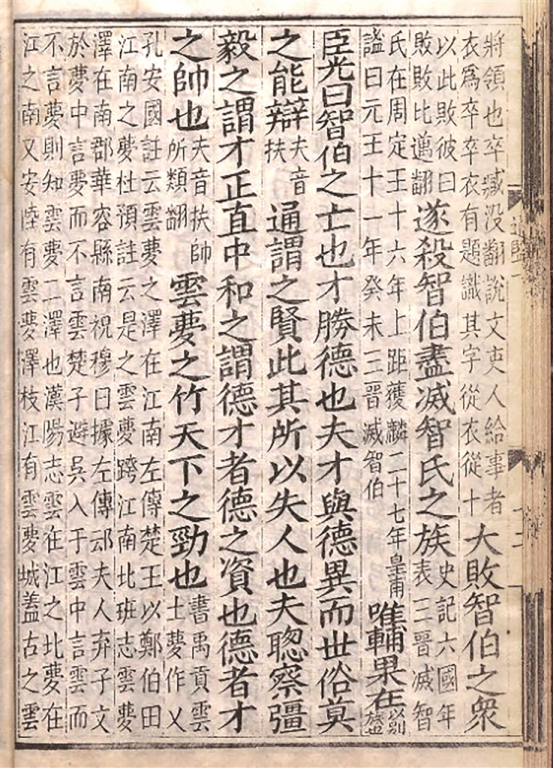 將領也卒臧没翻說文吏人給事者衣爲卒卒衣有題識其字從衣從十大敗智伯之衆
以此敗彼曰敗敗比邁翻遂殺智伯盡滅智氏之族史記六國年表三晉滅智
氏在周定王十六年上距獲麟二十七年皇甫謚曰元王十一年癸未三晉滅智伯唯輔果在以别族也
臣光曰智伯之士也才勝德也夫才與德異而世俗莫
之能辯夫音扶通謂之賢此其所以失人也夫聦察彊
毅之謂才正直中和之謂德才者德之資也德者才
之帥也夫音扶帥所類翻雲夢之竹天下之勁也書禹貢雲土夢作乂
孔安國註云雲夢之澤在江南左傳楚王以鄭伯田
江南之夢杜預註云是之雲夢跨江南北班志雲夢
澤在南郡華容縣南祝穆曰據左傳䢵夫人弃子文
於夢中言夢而不言雲楚子避吳入于雲中言雲而
不言夢則知雲夢二澤也漢陽志雲在江之北夢在
江之南又安陸有雲夢澤枝江有雲夢城蓋古之雲